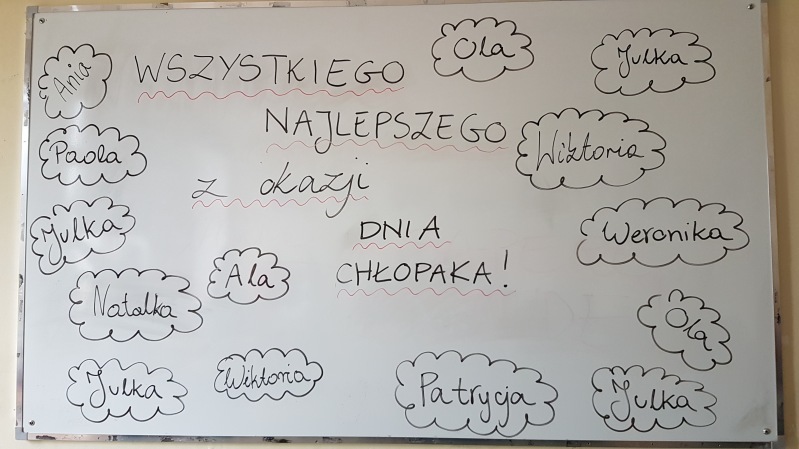 Ania
WSZYSTKIEGO
Ola
Julka
NAJLEPSZEGO
Paola
Wiktoria
z okazji
Julka
DNIA
Weronika
CHŁOPAKA!
Ala
Natalka
Ola
Julka
Wiktoria
Patrycja
Julka